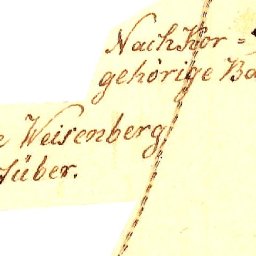 Nach Kor=
gehörige Ba
e Weisenberg
über.